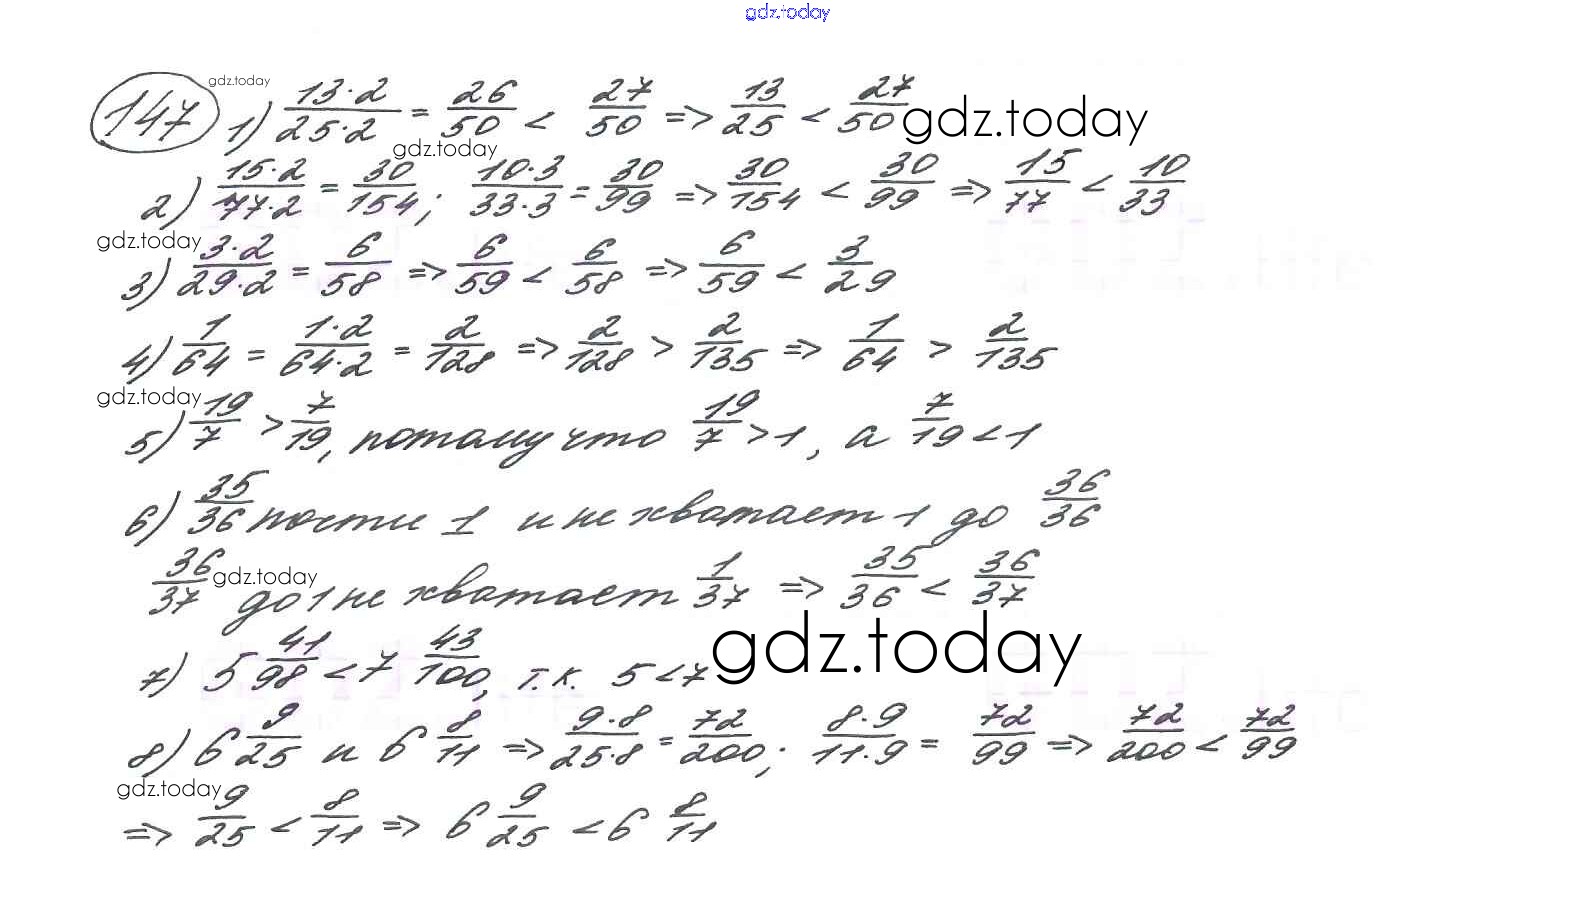 gdz.today
147 gdz.today 1) 13·2/25·2 = 26/50 < 27/50 => 13/25 < 27/50 gdz.today
gdz.today
2) 15·2/77·2 = 30/154; 10·3/33·3 = 30/99 => 30/154 < 30/99 => 15/77 < 10/33
gdz.today
3) 3·2/29·2 = 6/58 => 6/59 < 6/58 => 6/59 < 3/29
4) 1/64 = 1·2/64·2 = 2/128 => 2/128 > 2/135 => 1/64 > 2/135
gdz.today
5) 19/7 > 7/19, потому что 19/7 > 1, а 7/19 < 1
6) 35/36 почти 1 и не хватает 1 до 36/36
36/37 gdz.today до 1 не хватает 1/37 => 35/36 < 36/37
7) 5 41/98 < 7 43/100, т.к. 5 < 7 gdz.today
8) 6 9/25 и 6 8/11 => 9·8/25·8 = 72/200; 8·9/11·9 = 72/99 => 72/200 < 72/99
gdz.today
=> 9/25 < 8/11 => 6 9/25 < 6 8/11